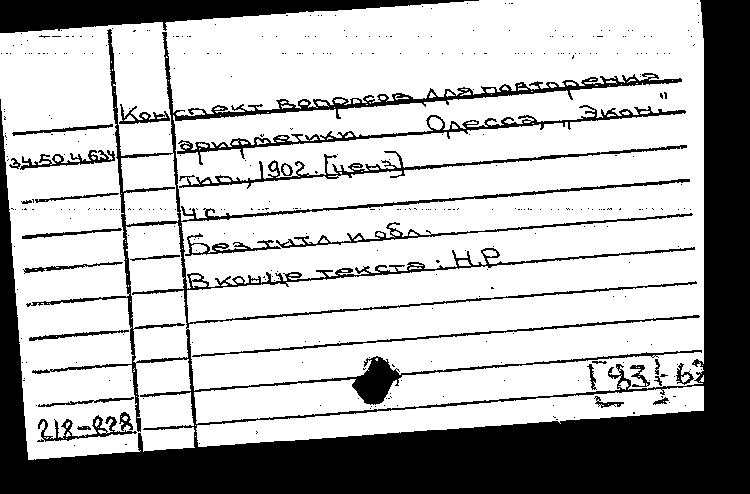 Конспект вопросов для повторения
арифметики. Одесса, „Экон."
34.50.4.634
тип., 1902. [ценз]
4 с.
Без титл. и обл.
В конце текста: Н.Р
[83]-62
218-828